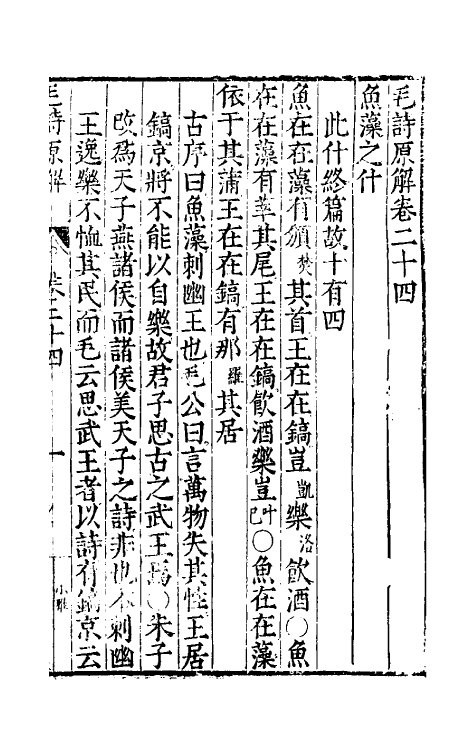 毛詩原解卷二十四
魚藻之什
此什終篇故十有四
魚在在藻有頒焚其首王在在鎬豈凱樂洛飲酒○魚
在在藻有莘其尾王在在鎬飲酒樂豈叶已○魚在在藻
依于其蒲王在在鎬有那羅其居
古序曰魚藻刺幽王也毛公曰言萬物失其性王居
鎬京將不能以自樂故君子思古之武王焉○朱子
改爲天子燕諸侯而諸侯美天子之詩非也本刺幽
王逸樂不恤其民而毛云思武王者以詩有鎬京云
毛詩原解 卷二十四 一 小雅